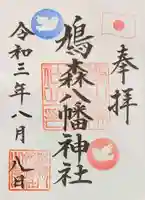 奉拝
鳩森八幡神社
令和三年八月
八日